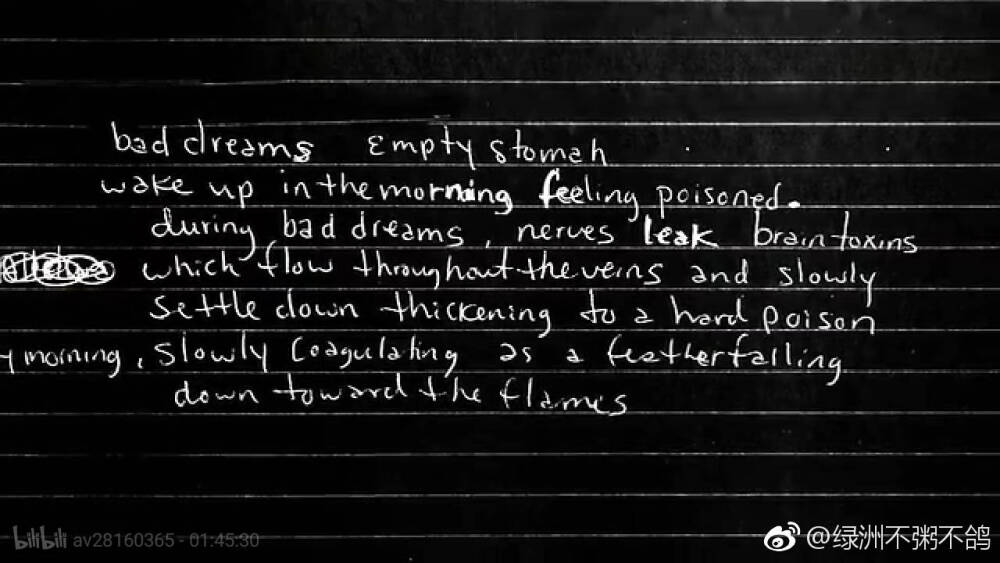 bad dreams empty stomah
wake up in the morning feeling poisoned.
during bad dreams, nerves leak brain toxins
which flow throughout the veins and slowly
settle down thickening to a hard poison
y morning, slowly coagulating as a feather falling
down toward the flames
bilibili av28160365 - 01:45:30
@绿洲不粥不鸽